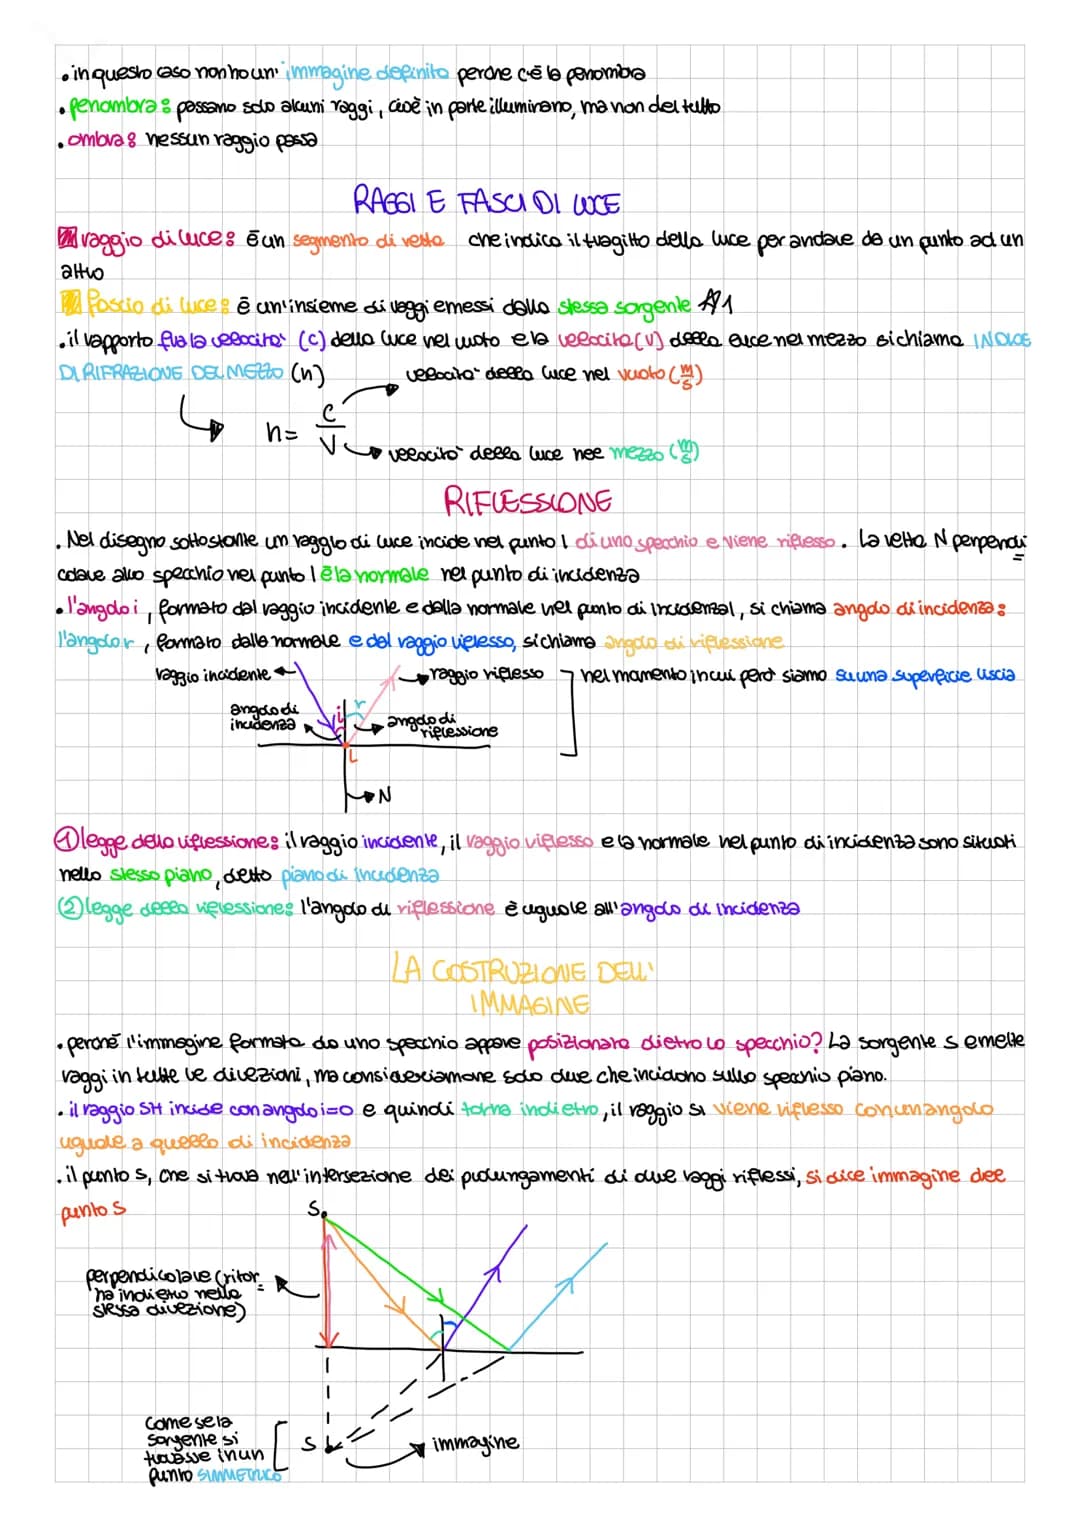 • in questo caso non ho un' immagine definita perche c'è la penombra
• penombra: passano solo alcuni raggi, cioè in parte illuminano, ma non del tutto
• ombra: nessun raggio passa
RAGGI E FASCI DI LUCE
raggio di luce: è un segmento di retta che indica il tragitto della luce per andare da un punto ad un
altro
fascio di luce: è un'insieme di raggi emessi dalla stessa sorgente
• il rapporto fra la velocità (c) della luce nel vuoto e la velocità (v) della luce nel mezzo si chiama INDICE
DI RIFRAZIONE DEL MEZZO (n)
velocità della luce nel vuoto (m/s)
n = c/v
velocità della luce nel mezzo (m/s)
RIFLESSIONE
• Nel disegno sottostante un raggio di luce incide nel punto I di uno specchio e viene riflesso. La retta N perpendi
colare allo specchio nel punto I è la normale nel punto di incidenza
• l'angolo i, formato dal raggio incidente e dalla normale nel punto di incidenza I, si chiama angolo di incidenza:
l'angolo r, formato dalla normale e dal raggio riflesso, si chiama angolo di riflessione
raggio incidente
raggio riflesso
nel momento in cui però siamo su una superficie liscia
angolo di
incidenza
i
r
angolo di
riflessione
I
N
① legge della riflessione: il raggio incidente, il raggio riflesso e la normale nel punto di incidenza sono situati
nello stesso piano, detto piano di incidenza
② legge della riflessione: l'angolo di riflessione è uguale all'angolo di incidenza
LA COSTRUZIONE DELL'
IMMAGINE
• perché l'immagine formata da uno specchio appare posizionata dietro lo specchio? La sorgente s emette
raggi in tutte le direzioni, ma consideriamone solo due che incidono sullo specchio piano.
• il raggio SH incide con angolo i=0 e quindi torna indietro, il raggio SI viene riflesso con un angolo
uguale a quello di incidenza
• il punto s, che si trova nell'intersezione dei prolungamenti di due raggi riflessi, si dice immagine del
punto S
S
perpendicolare (ritor
na indietro nella
stessa direzione)
come se la
sorgente si
trovasse in un
punto SIMMETRICO
S
immagine